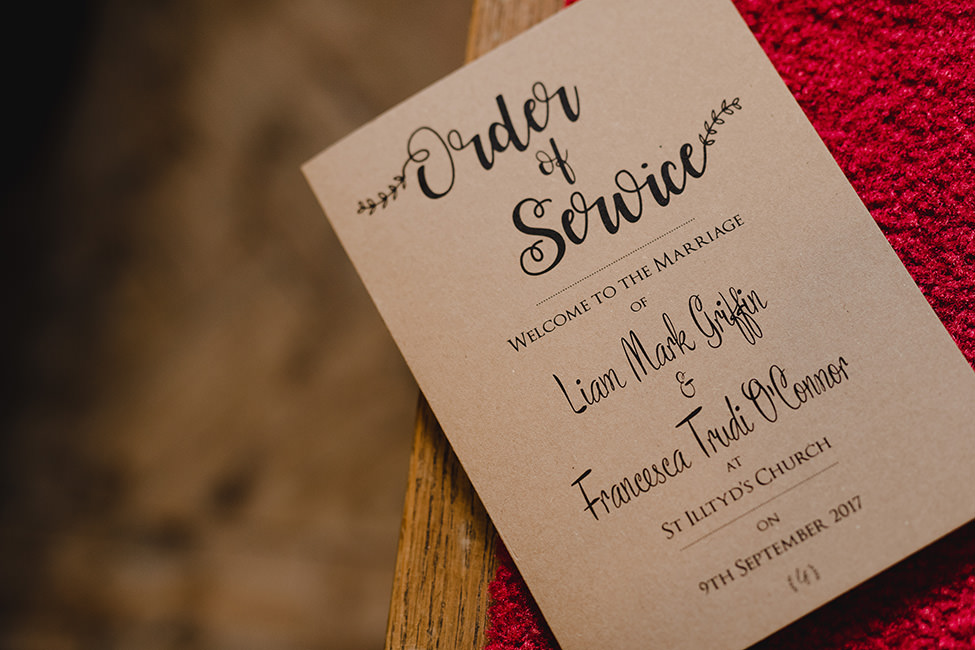 Order
of
Service
Welcome to the Marriage
of
Liam Mark Griffin
&
Francesca Trudi O'Connor
at
St Illtyd's Church
on
9th September 2017